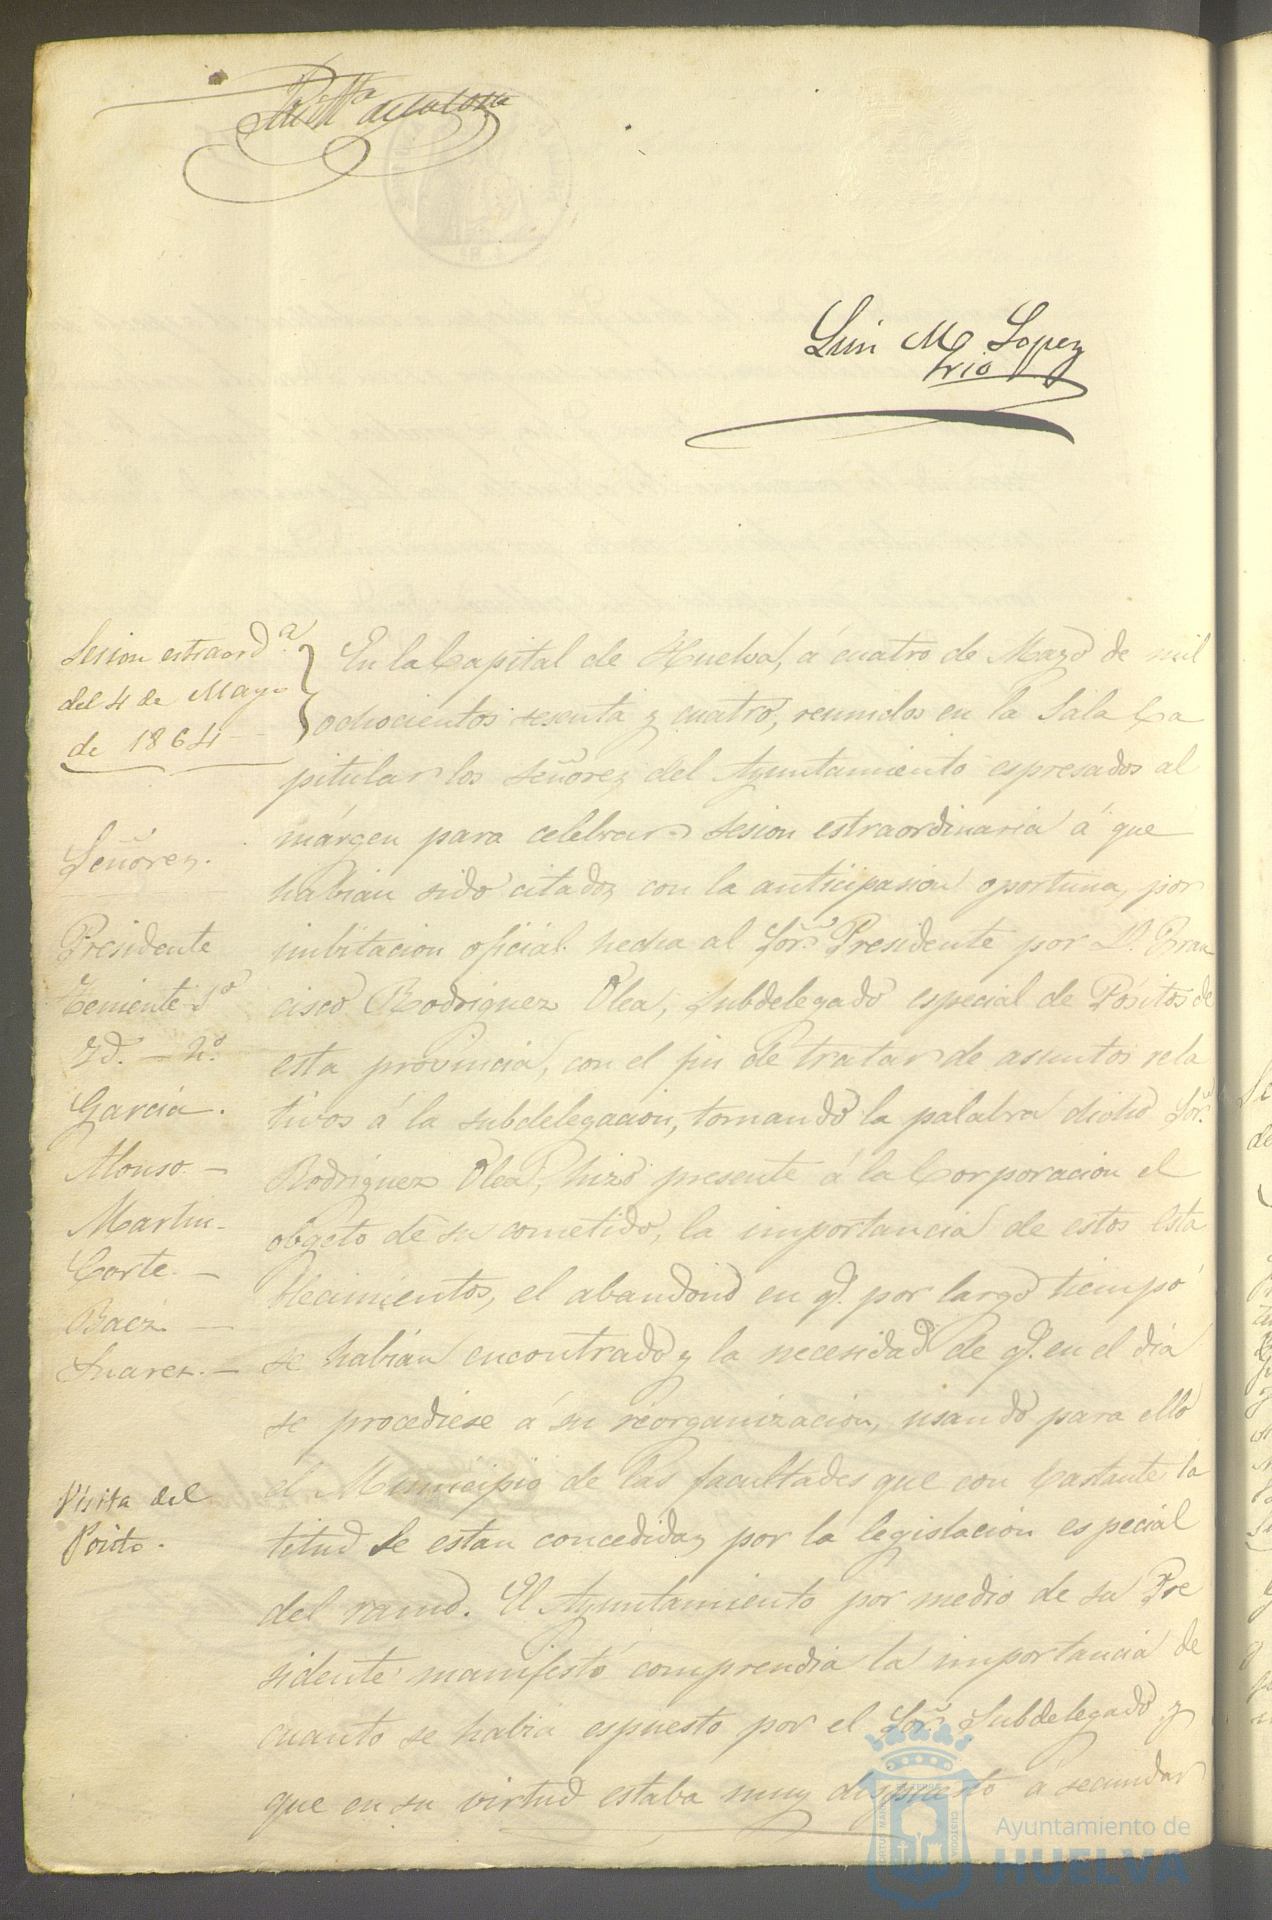 Luis M Lopez
Srio
Sesion estraord.ª
del 4 de Mayo
de 1864
Señores.
Presidente
Teniente 1º
Yd. - 2º
Garcia.
Alonso. -
Martin -
Corte. -
Baez -
Suarez. -
Visita del
Posito.
En la Capital de Huelva, á cuatro de Mayo de mil
ochocientos sesenta y cuatro, reunidos en la Sala Ca
pitular los Señores del Ayuntamiento espresados al
márgen para celebrar sesion estraordinaria á que
habian sido citados con la anticipasion oportuna, por
imbitacion oficial hecha al Sor. Presidente por D. Fran
cisco Rodriguez Olea, Subdelegado especial de Pósitos de
esta provincia, con el fin de tratar de asuntos rela
tivos á la subdelegacion, tomando la palabra dicho Sor.
Rodriguez Olea, hizo presente á la Corporacion el
obgeto de su cometido, la importancia de estos Esta
blecimientos, el abandono en q. por largo tiempo
se habian encontrado y la necesidad de q. en el dia
se procediese á su reorganizacion, usando para ello
el Municipio de las facultades que con bastante la
titud le estan concedidas por la legislacion especial
del ramo. El Ayuntamiento por medio de su Pre
sidente manifestó comprendia la importancia de
cuanto se habia espuesto por el Sor. Subdelegado y
que en su virtud estaba muy dispuesto á secundar
Ayuntamiento de
HUELVA